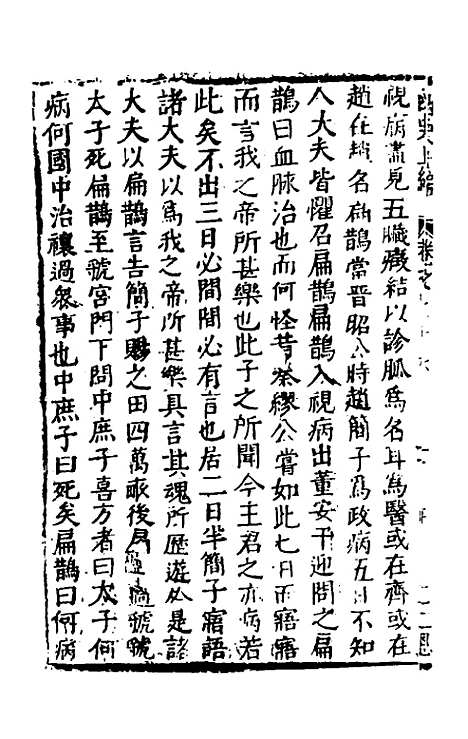 視病盡見五臟癥結以診脈爲名耳爲醫或在齊或在
趙在趙名扁鵲當晉昭公時趙簡子爲政病五日不知
人大夫皆懼召扁鵲扁鵲入視病出董安于迎問之扁
鵲曰血脉治也而何怪昔秦繆公嘗如此七日而寤寤
而言我之帝所甚樂也此子之所聞今主君之亦病若
此矣不出三日必間間必有言也居二日半簡子寤語
諸大夫以爲我之帝所甚樂具言其魂所歷遊必是諸
大夫以扁鵲言告簡子賜之田四萬畝後扁鵲過虢虢
太子死扁鵲至虢宮門下問中庶子喜方者曰太子何
病何國中治禳過衆事也中庶子曰死矣扁鵲曰何病